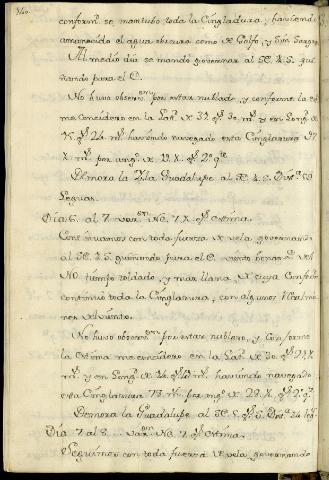 conform.e se mantubo toda la Cingladura, haviendo
amanecido el agua obscura como de Golfo, y sin Sargaso
Al medio dia se mandó governar al SE. 4. S. gui
ñando para el E.
No huvo observ.on por estar nublado, y conforme la es
me considero en la Lat. de 31. g.s 30. m.s y en Long. de
g.s 24. m.s haviendo navegado esta Cingladura
m.s por ang. de 22. g.s 2.o q.te
Demora la Ysla Guadalupe al SE. 4. S. Dist.a
Leguas.
Dia 6. al 7. var.on NE. 7. g.s estima.
Continuamos con toda fuerza de vela governando
al SE. 4. S. guiñando para el E. viento del
NO tiempo toldado, y mar llana, de cuya conform
continuó toda la Cingladura, con algunos
nes de viento.
No huvo observ.on por estar nublado, y conforme
la Estima me considero en la Lat. de 30. g.s 24
m.s y en Long. de 24. g.s m.s haviendo navegado
esta Cingladura 73. m.s por ang. de 28. g.s 2.o q.te
Demora la Guadalupe al SE. Dist.a 34 leg.s
Dia 7 al 8. var.on NE. 7. g.s estima.
Seguimos con toda fuerza de vela governando